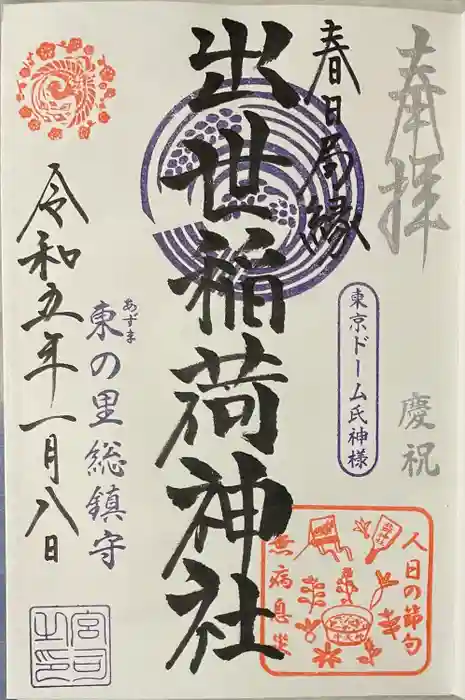 奉拝
慶祝
春日局縁
東京ドーム氏神様
出世稲荷神社
人日の節句
無病息災
あずま
東の里総鎮守
令和五年一月八日
宮司之印